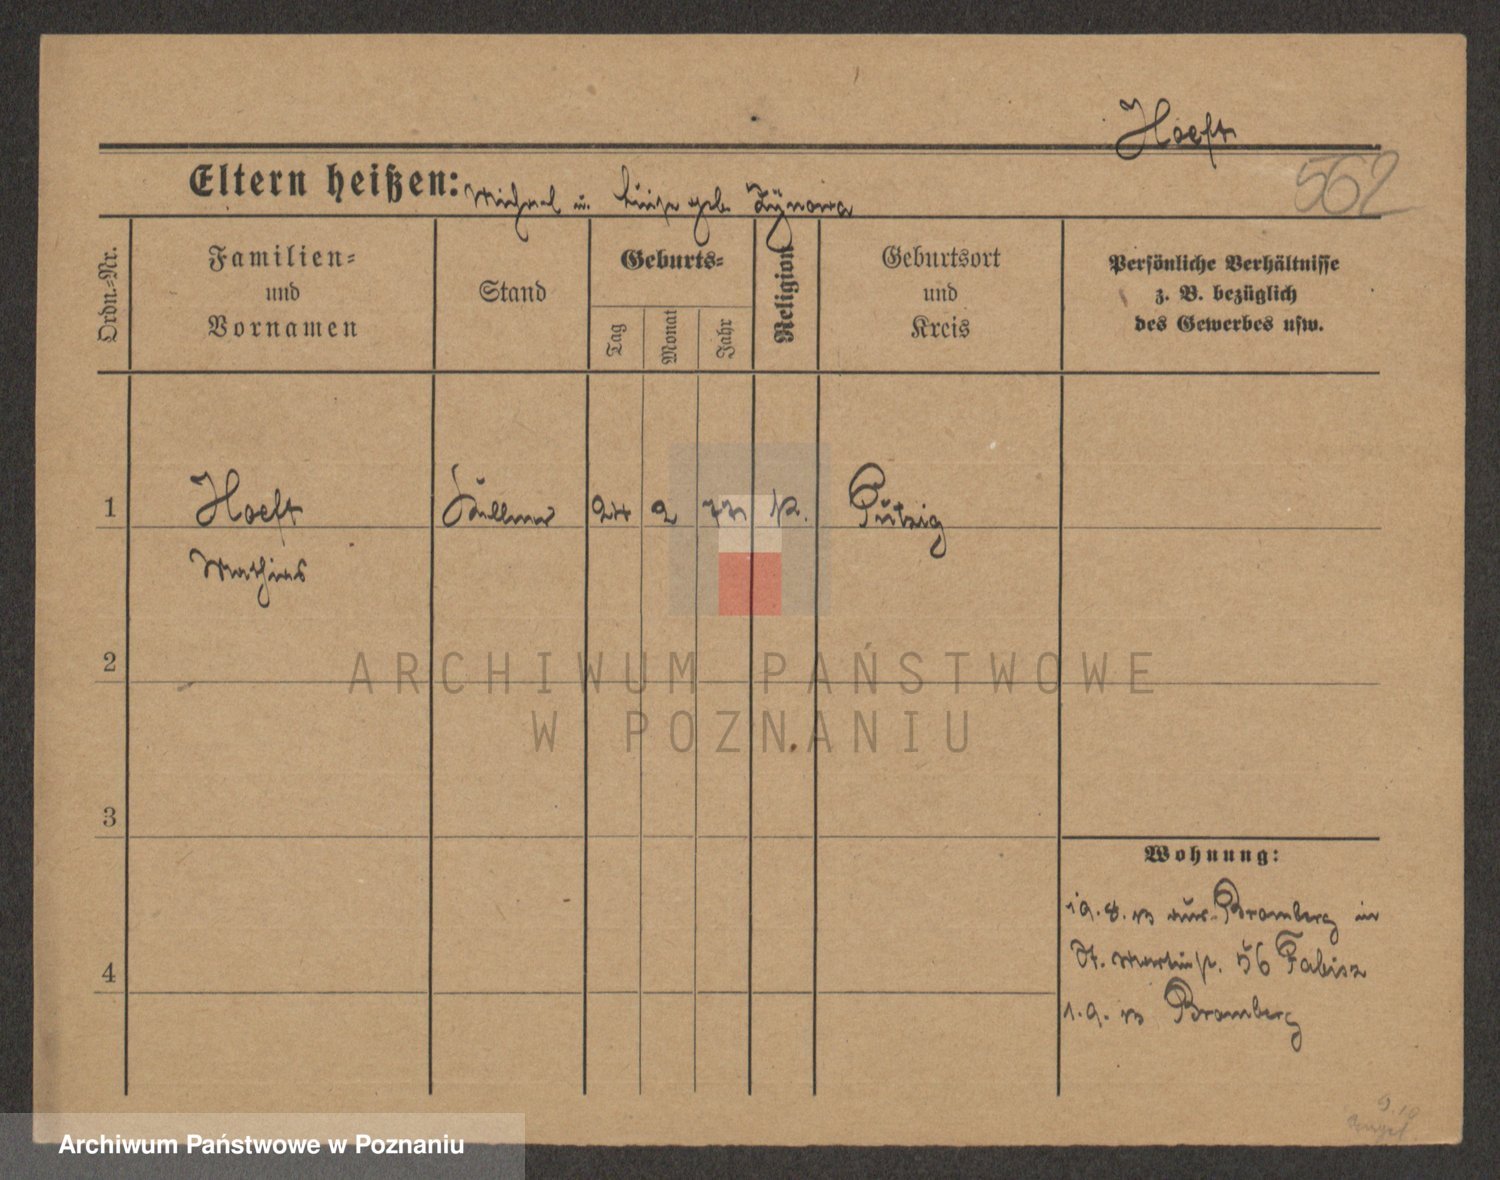 Hoeft
562
Eltern heißen: Michael u. Luise geb. Zynowa
Ordn.-Nr.
Familien-
und
Vornamen
Stand
Geburts-
Tag
Monat
Jahr
Religion
Geburtsort
und
Kreis
Persönliche Verhältnisse
z. B. bezüglich
des Gewerbes usw.
1
Hoeft
Kellner
24
2
77
K.
Putzig
Mathias
2
ARCHIWUM PAŃSTWOWE
W POZNANIU
3
Wohnung:
19. 8. 13 aus Bromberg in
St. Martinstr. 56 Fabisz
4
1. 9. 13 Bromberg
Archiwum Państwowe w Poznaniu